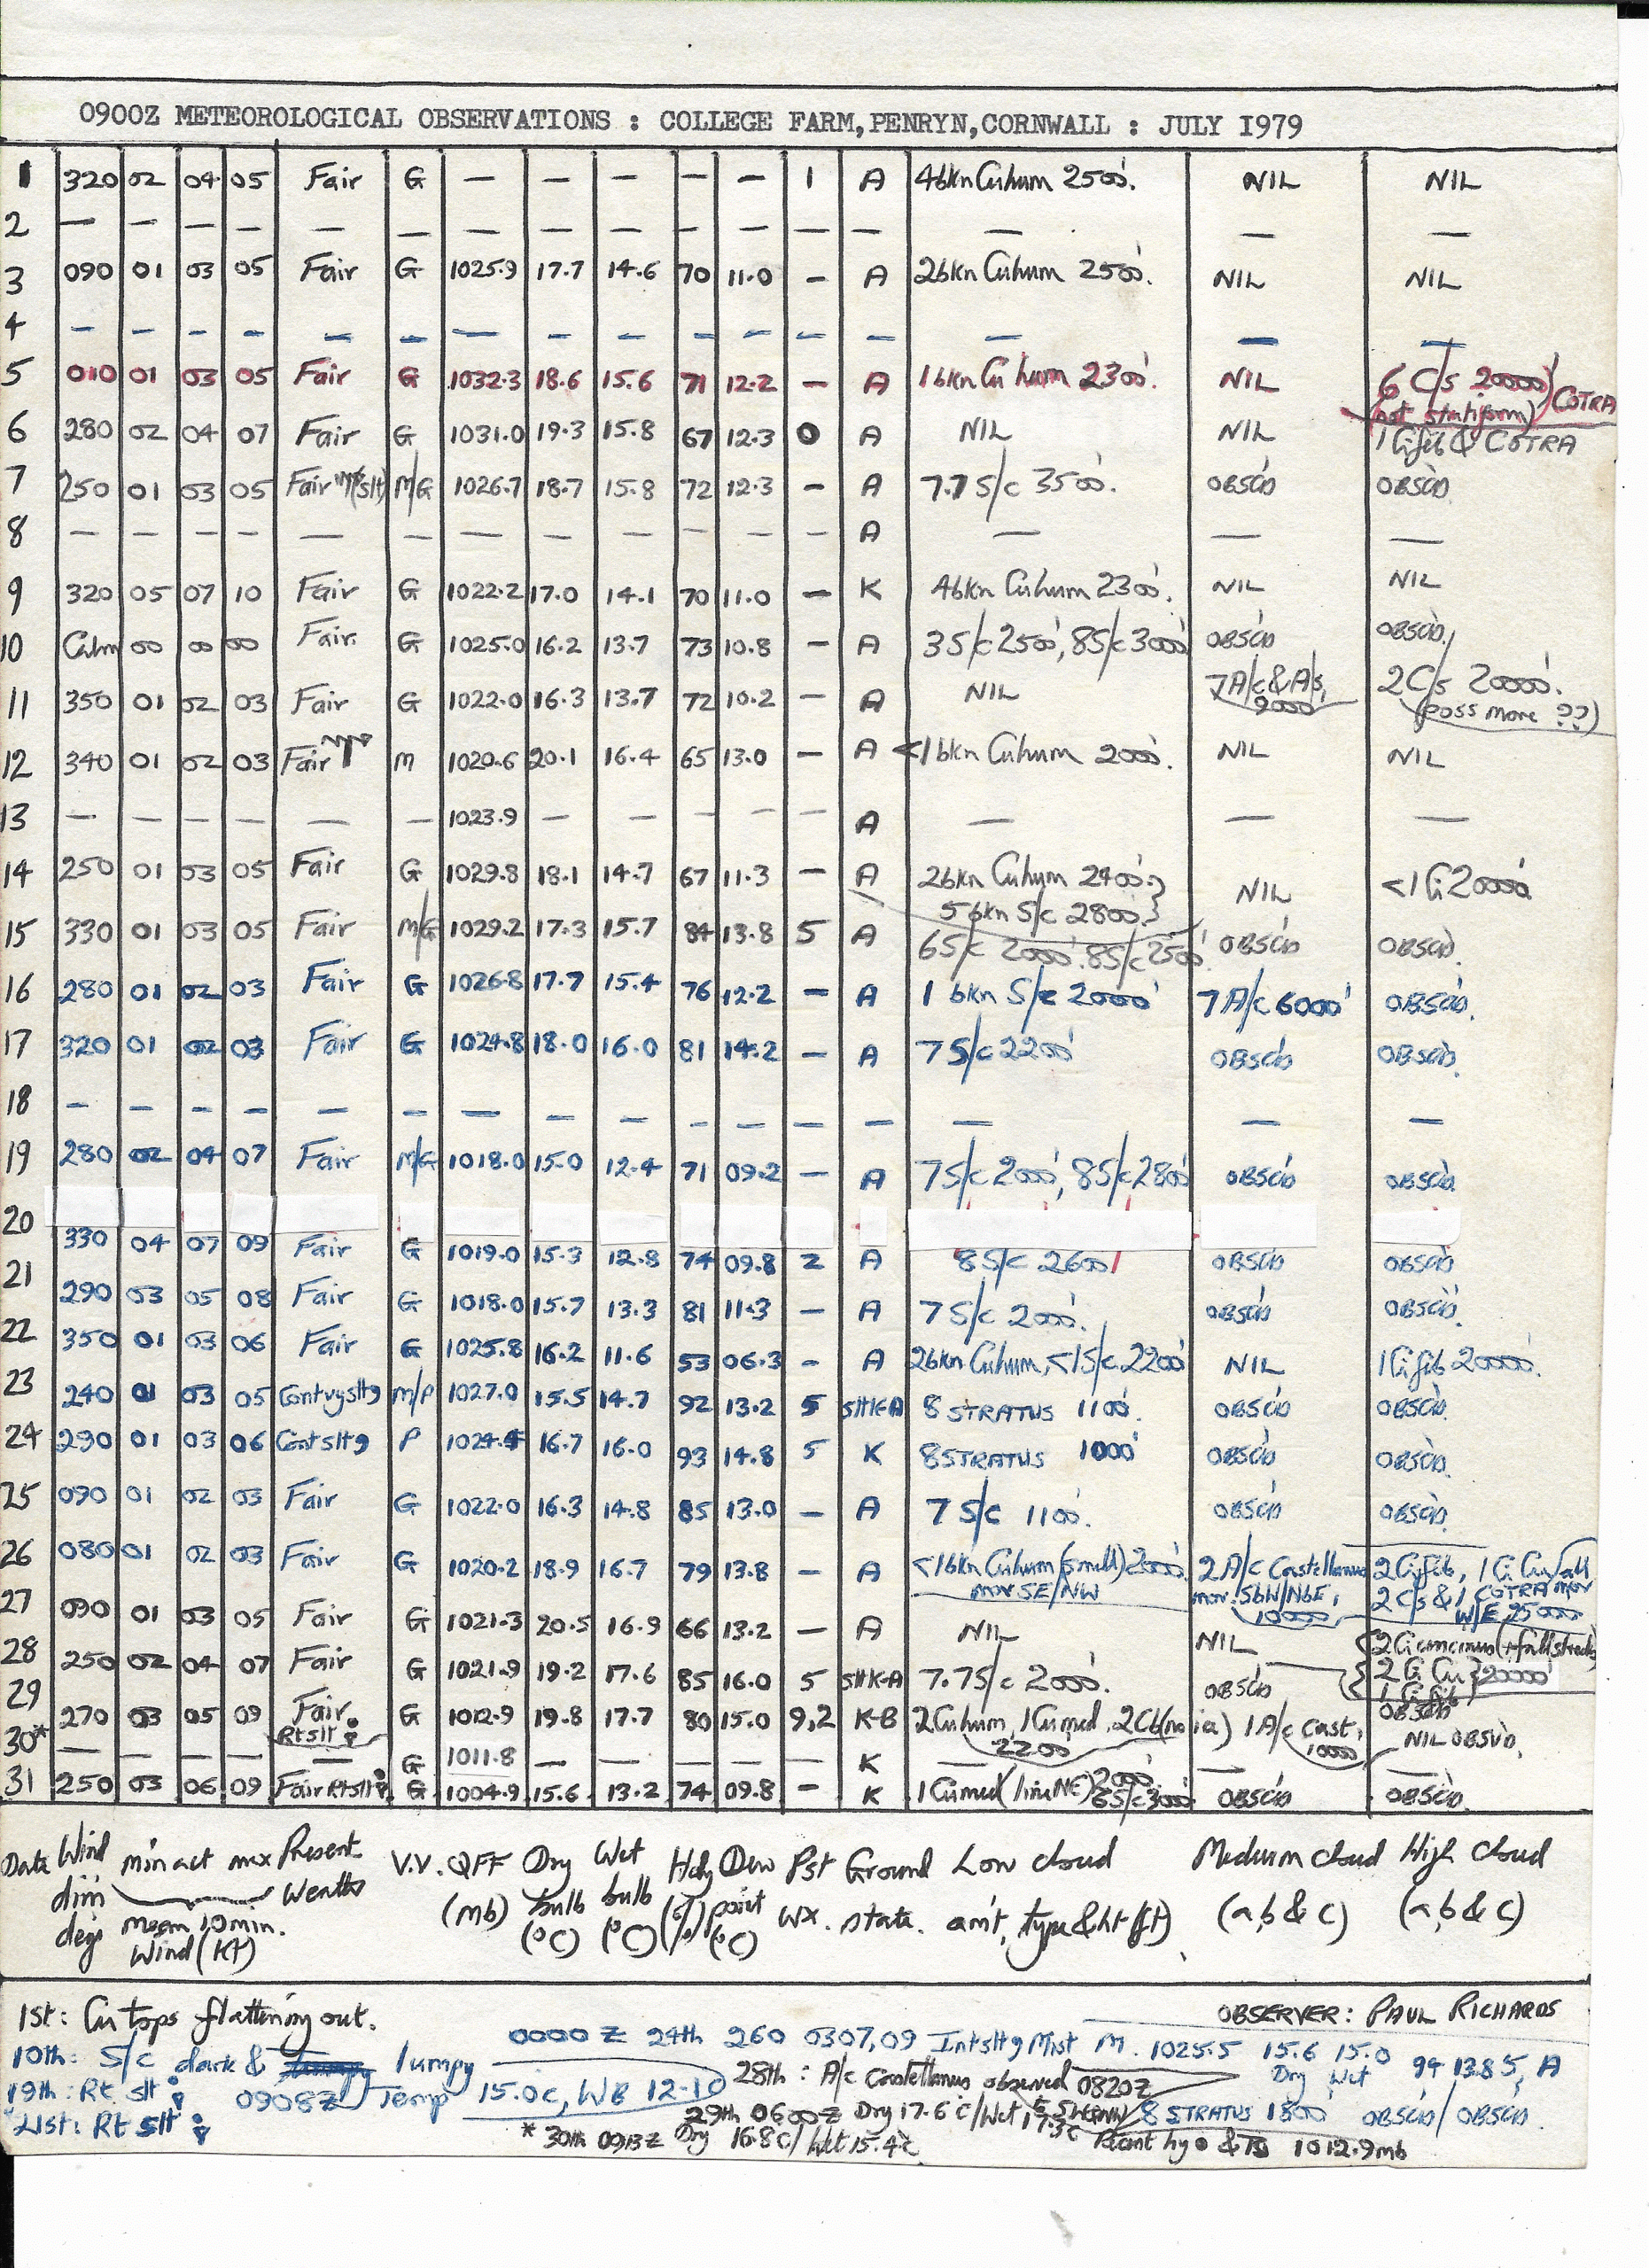 0900Z METEOROLOGICAL OBSERVATIONS : COLLEGE FARM,PENRYN,CORNWALL : JULY I979
1 320 02 04 05 Fair G — — — — — 1 A 4bkn Cuhum 2500'. NIL NIL
2 — — — — — — — — — — — — — — — —
3 090 01 03 05 Fair G 1025.9 17.7 14.6 70 11.0 — A 2bkn Cuhum 2500'. NIL NIL
4 — — — — — — — — — — — — — — — —
5 010 01 03 05 Fair G 1032.3 18.6 15.6 71 12.2 — A 1bkn Cu hum 2300'. NIL 6 C/s 20000' COTRA
(not stratiform)
6 280 02 04 07 Fair G 1031.0 19.3 15.8 67 12.3 0 A NIL NIL 1 Cifib & COTRA
7 250 01 03 05 Fair (slt) M/G 1026.7 18.7 15.8 72 12.3 — A 7.7 S/c 3500'. OBSCD OBSCD.
8 — — — — — — — — — — — — A — — —
9 320 05 07 10 Fair G 1022.2 17.0 14.1 70 11.0 — K 4bkn Cuhum 2300'. NIL NIL
10 Calm 00 00 00 Fair. G 1025.0 16.2 13.7 73 10.8 — A 3S/c 2500', 8S/c 3000' OBSCD OBSCD.
11 350 01 02 03 Fair G 1022.0 16.3 13.7 72 10.2 — A NIL 7A/c & A/s, 9000' 2C/s 20000'.
(poss more ??)
12 340 01 02 03 Fair M 1020.6 20.1 16.4 65 13.0 — A <1bkn Cuhum 2000'. NIL NIL
13 — — — — — — 1023.9 — — — — — A — — —
14 250 01 03 05 Fair G 1029.8 18.1 14.7 67 11.3 — A 2bkn Cuhum 2400'. NIL <1 Ci 20000'
5bkn S/c 2800'.
15 330 01 03 05 Fair M/G 1029.2 17.3 15.7 84 13.8 5 A 6S/c 2000'. 8S/c 2500' OBSCD OBSCD.
16 280 01 02 03 Fair G 1026.8 17.7 15.4 76 12.2 — A 1 bkn S/c 2000' 7 A/c 6000' OBSCD.
17 320 01 02 03 Fair G 1024.8 18.0 16.0 81 14.2 — A 7 S/c 2200' OBSCD OBSCD.
18 — — — — — — — — — — — — — — — —
19 280 02 04 07 Fair M/G 1018.0 15.0 12.4 71 09.2 — A 7S/c 2000', 8S/c 2800' OBSCD OBSCD
20 330 04 07 09 Fair G 1019.0 15.3 12.8 74 09.8 2 A 8S/c 2600' OBSCD OBSCD
21 290 03 05 08 Fair G 1018.0 15.7 13.3 81 11.3 — A 7 S/c 2000'. OBSCD OBSCD.
22 350 01 03 06 Fair G 1025.8 16.2 11.6 53 06.3 - A 2bkn Cuhum, <1S/c 2200' NIL 1Cifib 20000'.
23 240 01 03 05 Contvyslt9 M/P 1027.0 15.5 14.7 92 13.2 5 SltK-A 8 STRATUS 1100'. OBSCD OBSCD.
24 290 01 03 06 Contslt9 P 1024.4 16.7 16.0 93 14.8 5 K 8STRATUS 1000' OBSCD OBSCD.
25 090 01 02 03 Fair G 1022.0 16.3 14.8 85 13.0 — A 7 S/c 1100'. OBSCD OBSCD.
26 080 01 02 03 Fair G 1020.2 18.9 16.7 79 13.8 — A <1bkn Cuhum (small) 2000' 2 A/c Castellanus 2Cifib, 1Ci Cu fall
mov SE/NW mov. SbW/NbE, 10000' 2 C/s & 1 COTRA mov W/E 25000'
27 090 01 03 05 Fair G 1021.3 20.5 16.9 66 13.2 — A NIL NIL 2Ciuncinus(+fallstreaks)
2 Ci Cu 20000'
1 Ci fib
28 250 02 04 07 Fair G 1021.9 19.2 17.6 85 16.0 5 SltK-A 7.7S/c 2000'. OBSCD OBSCD
29 270 03 05 09 Fair G 1012.9 19.8 17.7 80 15.0 9,2 K-B 2Cuhum, 1Cumed, 2Cb(no ice) 2200' 1A/c cast, 10000' NIL OBSVD.
Rtslt
30* — — — — — G 1011.8 — — — — — K — — —
31 250 03 06 09 Fair Rtslt G 1004.9 15.6 13.2 74 09.8 - K 1Cumed (line NE) 2000' 6S/c 3000' OBSCD OBSCD.
Date Wind min act max Present V.V. QFF Dry Wet Hdy Dew Pst Ground Low cloud Medium cloud High cloud
dirn weather (mb) bulb bulb (%) point wx. state. am't, type & ht (ft) (a,b & c) (a,b & c)
degs mean 10min. (°C) (°C) (°C)
Wind (KT)
1st: Cu tops flattening out. OBSERVER: PAUL RICHARDS
0000 Z 24th 260 0307,09 Intslt9 Mist M. 1025.5 15.6 15.0 94 13.8 5, A
Dry Wet
10th: S/c dark & lumpy
28th: A/c Castellanus observed 0820Z
19th: Rt slt 0908Z Temp 15.0c, WB 12.1
8 STRATUS 1800' OBSCD/OBSCD.
21st: Rt slt
29th 0600Z Dry 17.6c/Wet 17.3c Recent hy & 1012.9mb
* 30th 0913Z Dry 16.8c/Wet 15.4c